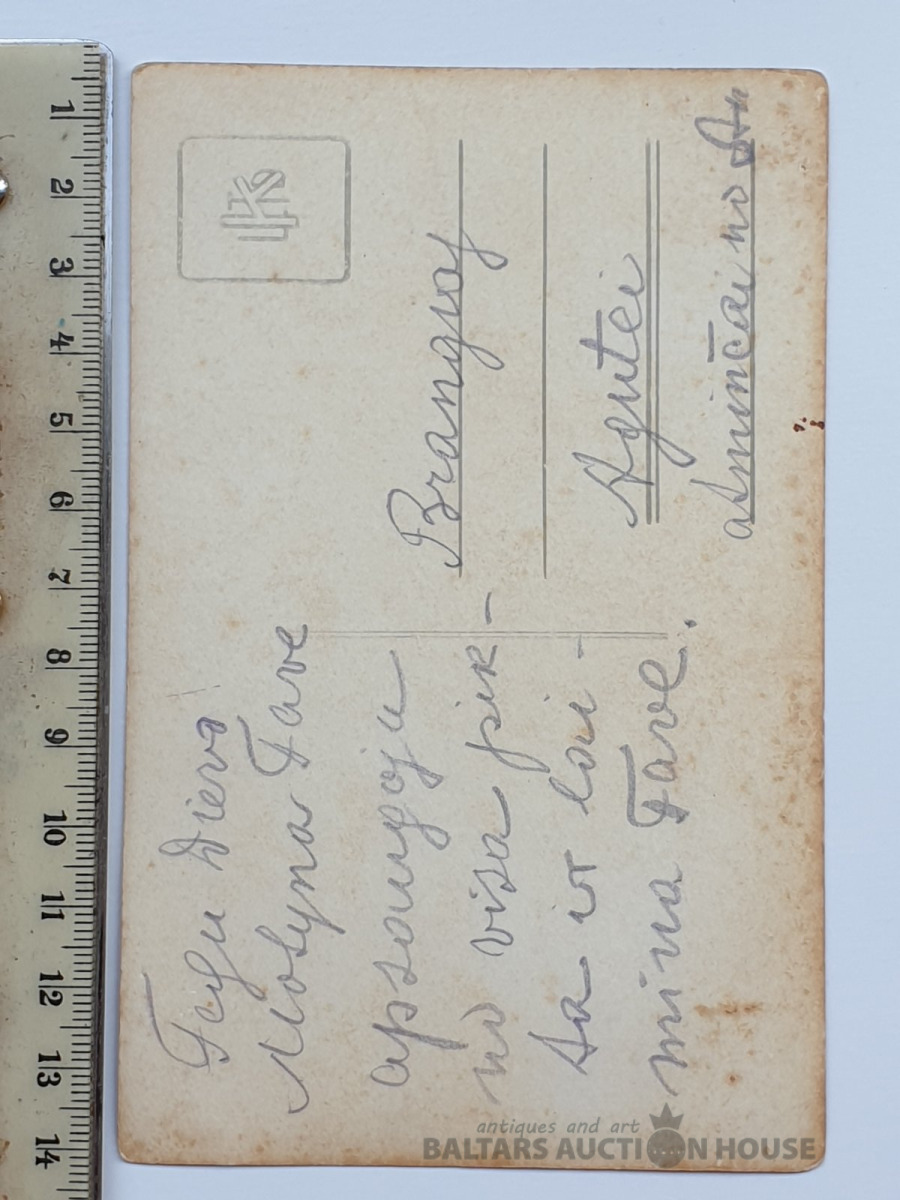 Tegu Dievo
Motyna Tave
apsaugoja
no visa pik-
ta ir lai-
mina Tave.
Brangiaj
Agutei
atminčai no An
1 2 3 4 5 6 7 8 9 10 11 12 13 14
antiques and art
BALTARS AUCTION HOUSE